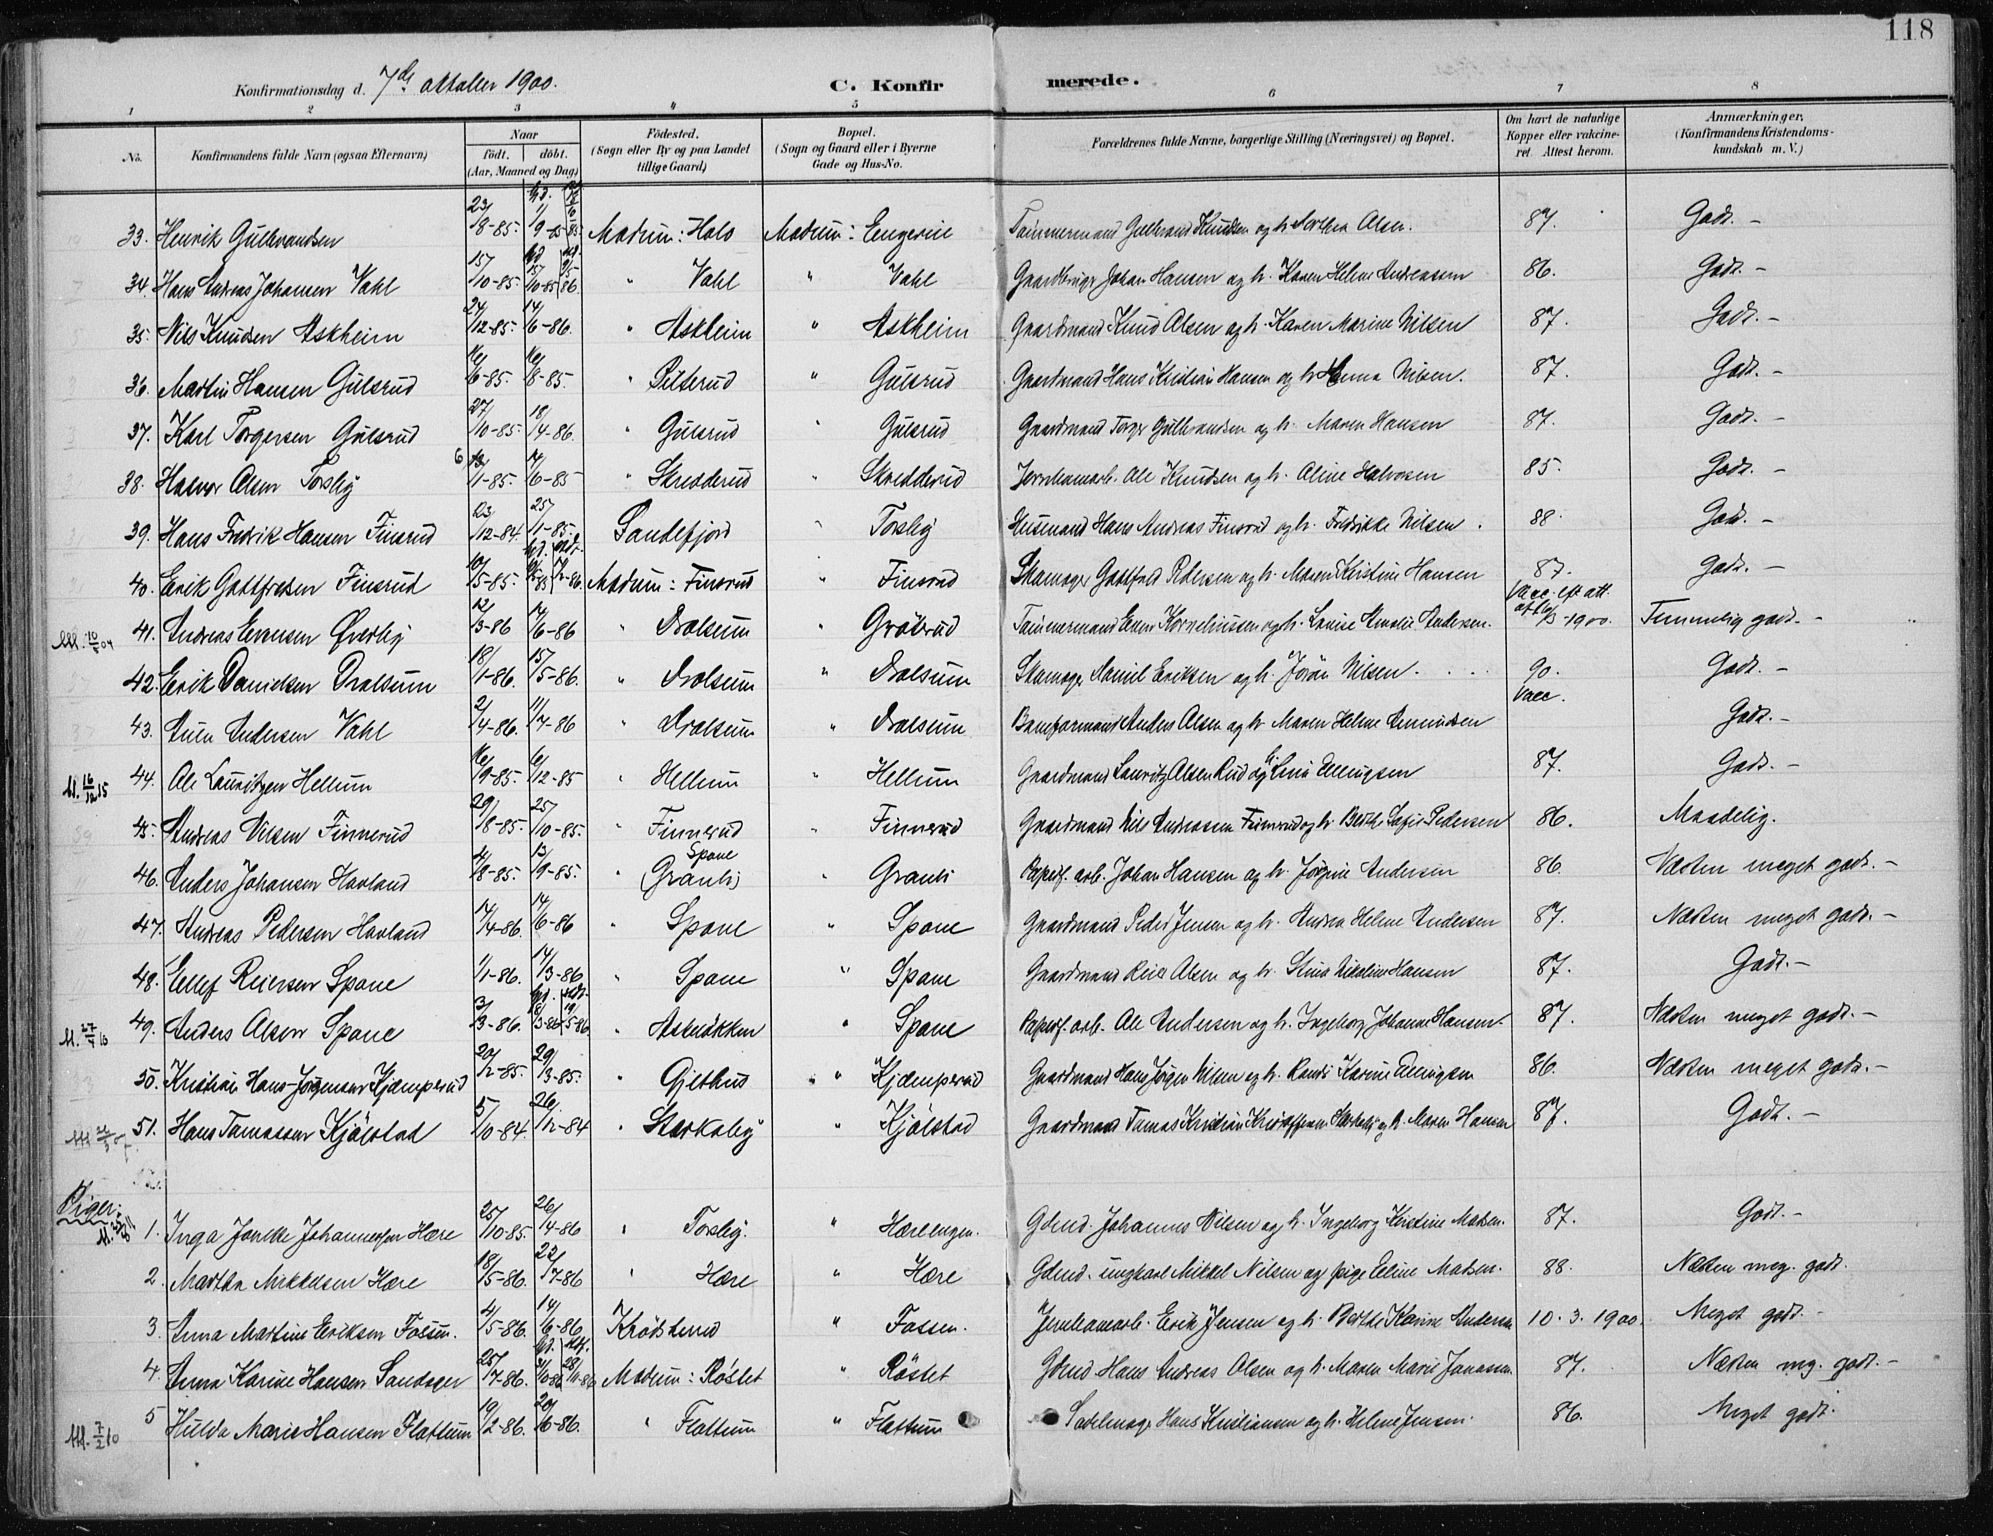 118
Konfirmationsdag d. 7de oktober 1900.
C. Konfirmerede.
1 2 3 " 5 6 7 8
No. Konfirmandens fulde Navn (ogsaa Efternavn) Naar födt. döbt. (Aar, Maaned og Dag) Födested. (Sogn eller By og paa Landet tillige Gaard) Bopæl. (Sogn og Gaard eller i Byerne Gade og Hus-No. Forældrenes fulde Navne, borgerlige Stilling (Næringsvei) og Bopæl. Om havt de naturlige Kopper eller vaccineret. Attest herom. Anmærkninger, (Konfirmandens Kristendomskundskab m. V.)
33. Henrik Gulbrandsen 23/8-85. 1/9-85 Modum: Hals Modum: Engerne Tømmermand Gulbrand Knudsen og h. Olsen. 87. Godt. -
34. Hans Andreas Johansen Vahl 15/10-85. 15/10-85 " Vahl " Vahl Gaardbruger Johan Hansen og h. Karen Helene Andreassen 86. Godt. -
35. Nils Knudsen Askheim 24/12-85. 14/6-86. " Askheim " Askheim Gaardmand Knud Olsen og h. Karen Marine Nilsen 87. Godt. -
36. Martin Hansen Gulsrud 16/6-85. 16/8-85. " Pilterud " Gulsrud Gaardmand Hans Kristian Hansen og h. Anna Nilsen. 87. Godt. -
37. Karl Torgersen Gulsrud 27/10-85. 18/4-86. " Gulsrud " Gulsrud Gaardmand Torger Gulbrandsen og h. Maren Hansen 87. Godt. -
38. Halvor Olsen Torsby /1-85. 14/6-85 " Skredderud " Skredderud Jernbanearb. Ole Knudsen og h. Oline Halvorsen 85. Godt. -
39. Hans Fredrik Hansen Finsrud 23/12-84. 25/1-85. Sandefjord " Torsby Husmand Hans Andreas Finsrud og h. Fredrikke Nilsen. 88. Godt. -
40. Erik Gottfredsen Finsrud 10/5-85. Modum: Finsrud " Finsrud Skomager Gottfred Pedersen og h. Maren Kristine Hansen 87. Godt. -
41. Andreas Evensen Överby 12/3-86 14/6-86 " Drolsum " Gröterud Tømmermand Even Korneliussen og h. Lovise Amalie Andersen. Vacc. eft att. af 10/3-1900. Temmelig godt. -
42. Erik Danielsen Drolsum 18/1-86. 15/5-86. " Drolsum " Drolsum Skomager Daniel Eriksen og h. Jörån Nilsen. 90. Godt. -
43. Andersen Vahl 2/4-86. 11/7-86 " Drolsum " Drolsum Baneformand Anders Olsen og h. Maren Helene Amundsen Vacc. Godt. -
44. Ole Lauritzen Hellum 16/9-85. 6/12-85 " Hellum " Hellum Gaardmand Lauritz Olsen Rud og Ellingsen 87. Godt. -
45. Andreas Nilsen Finnerud 29/8-85. 25/10-85. " Finnerud " Finnerud Gaardmand Nils Andreassen Finnerud og h. Berthe Sofie Pedersen 86. Maadelig.
46. Anders Johansen Havland 4/8-85. 13/9-85. " Spone (Granli) " Granli Papirf. arb. Johan Hansen og h. Jörgine Andersen 86. Næsten meget godt. -
47. Andreas Pedersen Havland 14/4-86. 14/6-86 " Spone " Spone Gaardmand Peder Jensen og h. Andrea Helene Andersen 87. Næsten meget godt. -
48. Ellef Reiersen Spone 1/1-86. 14/3-86. " Spone " Spone Gaardmand Reier Olsen og h. Stina Nikoline Hansen 87. Godt. -
49. Anders Olsen Spone 3/3-86. " Askebakken " Spone Papirf. arb. Ole Andersen og h. Ingeborg Johanne Hansen. 87. Næsten meget godt. -
50. Kristian Hans-Jørgensen Kjemperud 20/2-85. 29/3-85. " Gjethus " Kjemperud Gaardmand Hans Jörgen Nilsen og h. Randi Karine Ellingsen 86. Næsten meget godt. -
51. Hans Tomassen Kjölstad 5/10-84. 26/12-84 " Storkeby " Kjölstad Gaardmand Tomas Kristian Kristoffersen og h. Maren Hansen 87. Godt. -
Piger.
1. Inga Johannesen Hære 25/10-85. 26/4-86 " Torsby. " Hæreengen. Gdmd. Johannes Nilsen og h. Ingeborg Kristine Madsen. 87. Godt. -
2. Marthea Mikkelsen Hære 18/5-86. 22/7-86 " Hære " Hære Gdmd. ungkarl Mikkel Nilsen og pige Eline Madsen. 88. Næsten meg. godt.
3. Anna Martine Eriksen Fossen. 4/5-86. 14/6-86 Krödsherred " Fossen. Jernbanearb. Erik Jensen og h. Berthe Karine Andersen 10. 3. 1900. Meget godt. -
4. Anna Karine Hansen Sandager 25/7-86. Modum: Röstet " Röstet Gdmd Hans Andreas Olsen og h. Maren Marie Jonassen. 87. Næsten mg. godt. -
5 Hulda Marie Hansen Flattum 19/2-86. 20/6-86. " Flattum " Flattum Sadelmager Hans Kristiansen og h. Helene Jensen. 86. Meget godt.